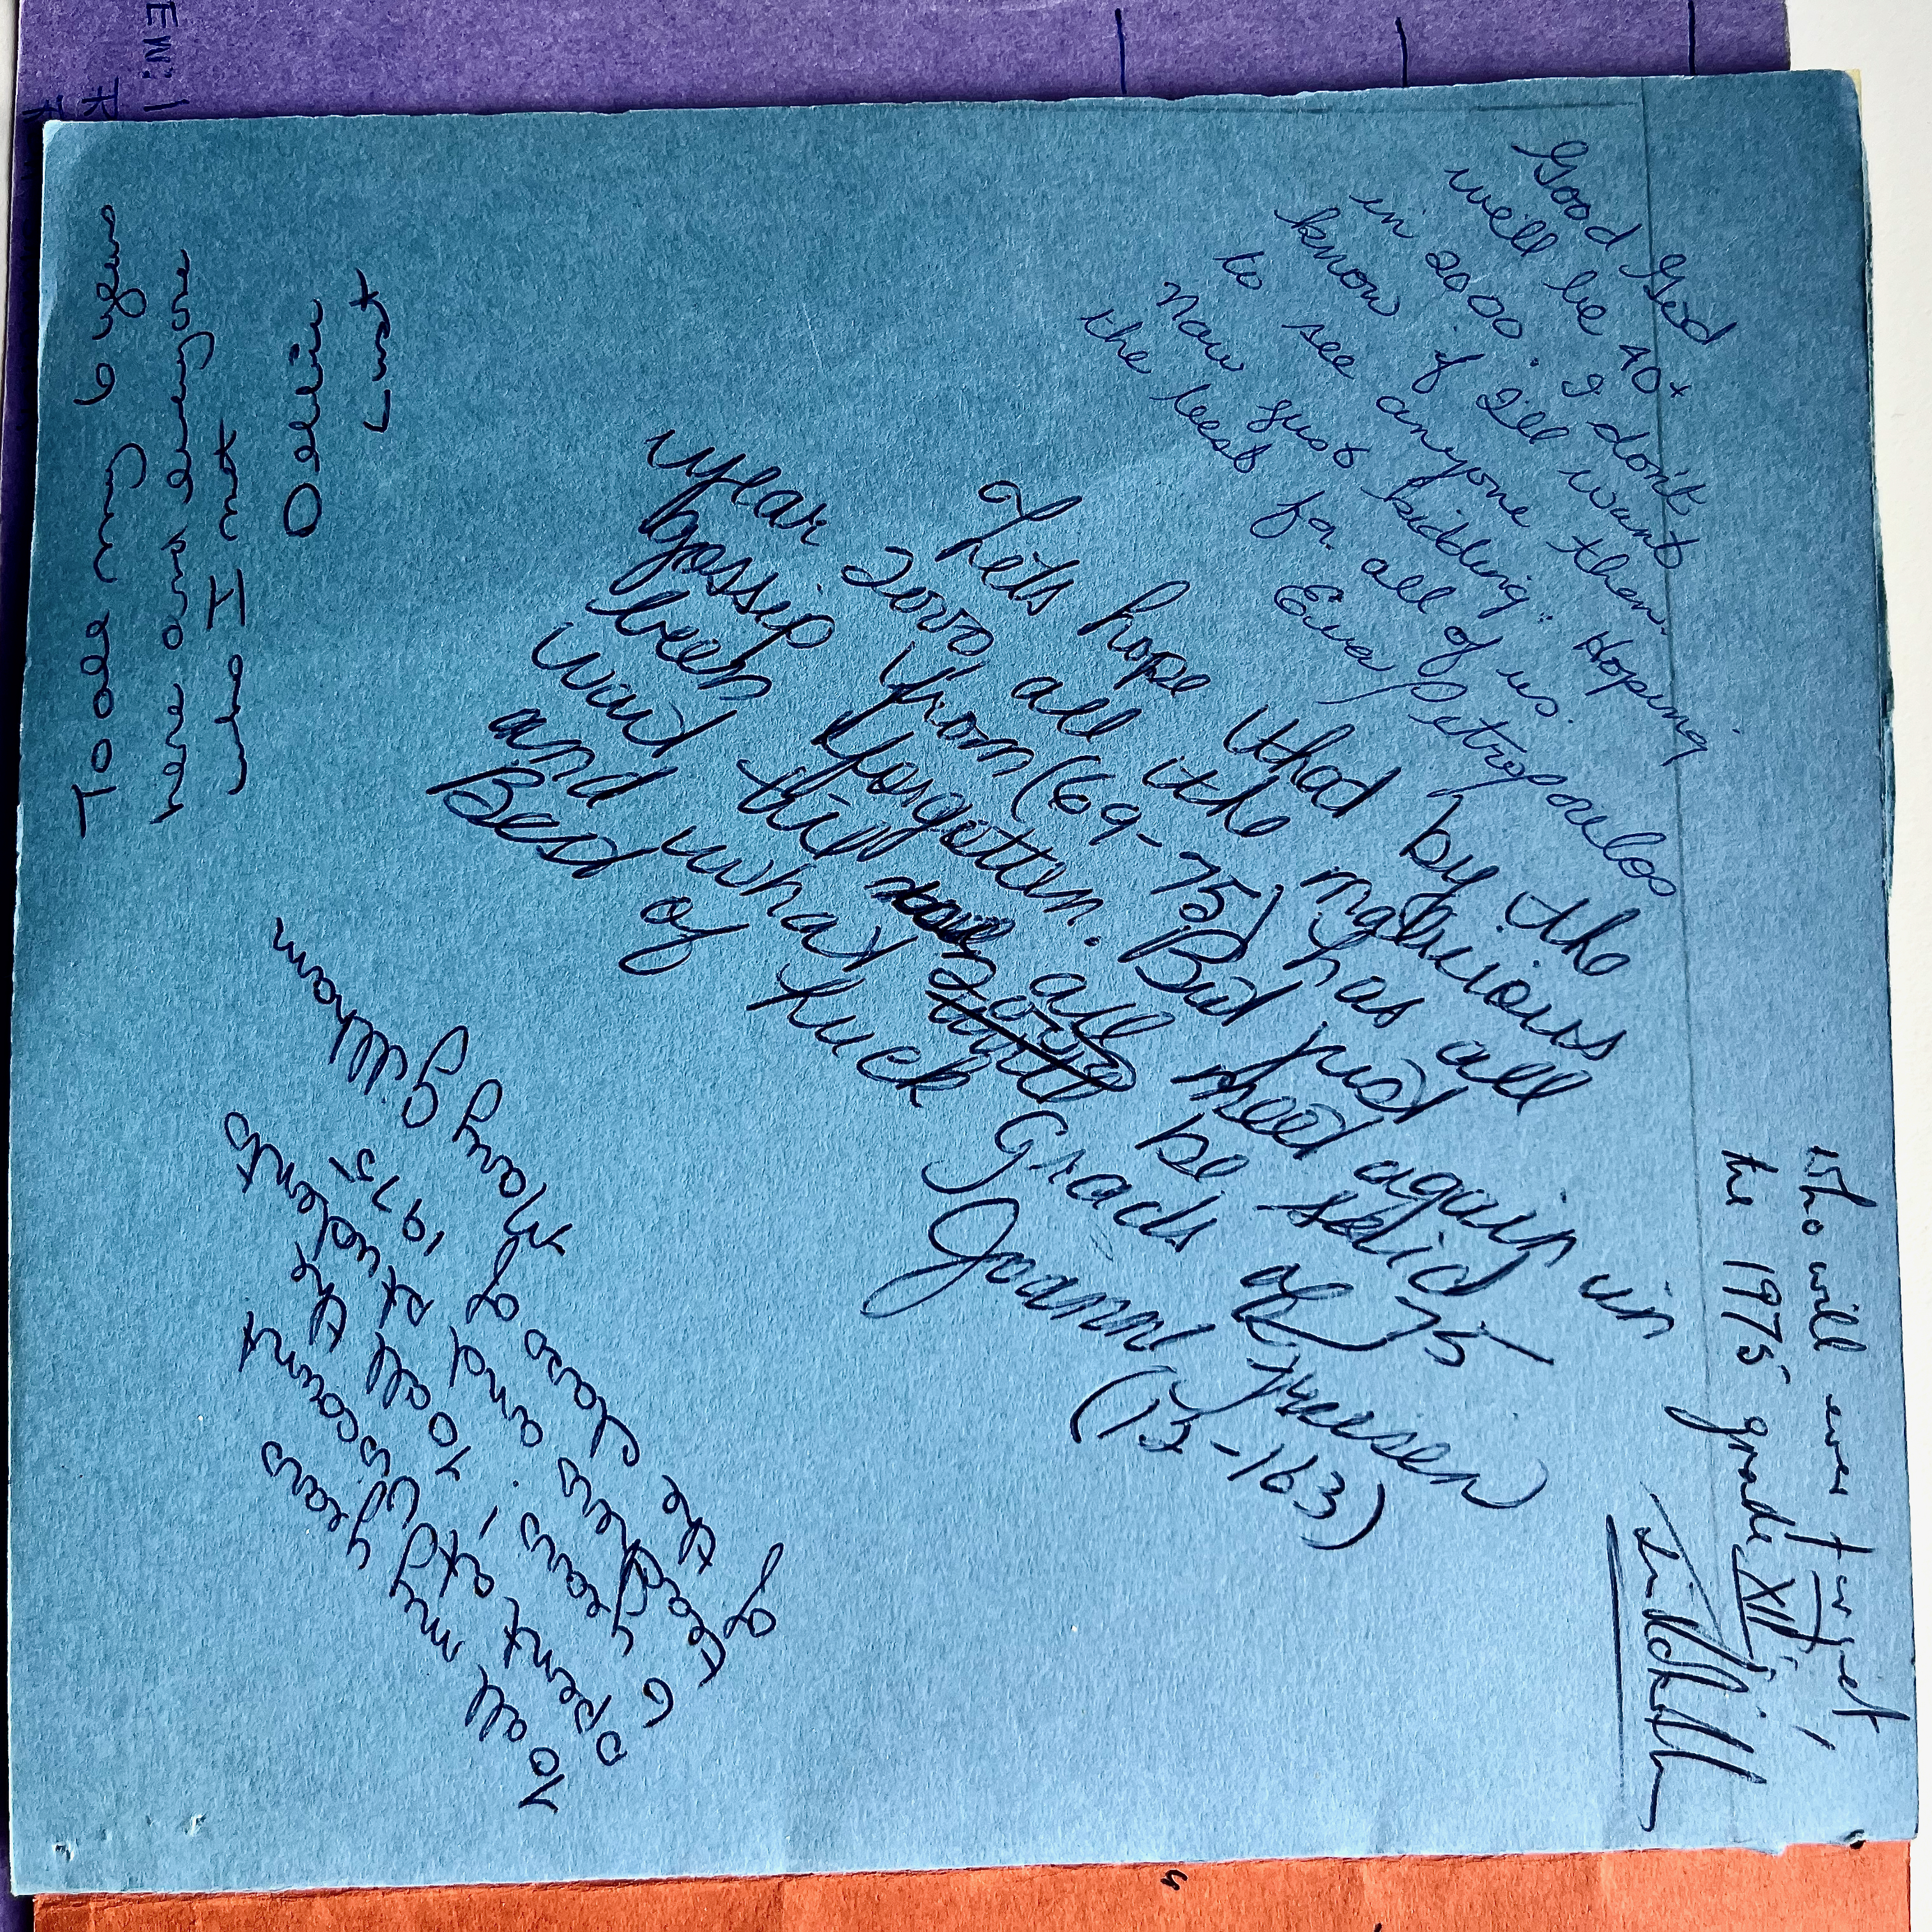 Good God
we'll be 40+
in 2000. I don't
know if I'll want
to see anyone then.
Now just kidding. Hoping
the best for all of us.
Eva Petropoulos
Lets hope that by the
year 2000 all the malicious
gossip from (69-75) has all
been forgotten. But just
wait till all meet again in
and what be said
Best of luck Grads of 75
Joanne
(12-163)
Who will ever forget,
the 1975 grade XII,
To all my 6 years
here and everyone
who I not
Debbie
Lust
To all my years
spent at Wiscount
6 years, to all the
teachers and students
of the class of 1975
Mary Gillham
EW: 1